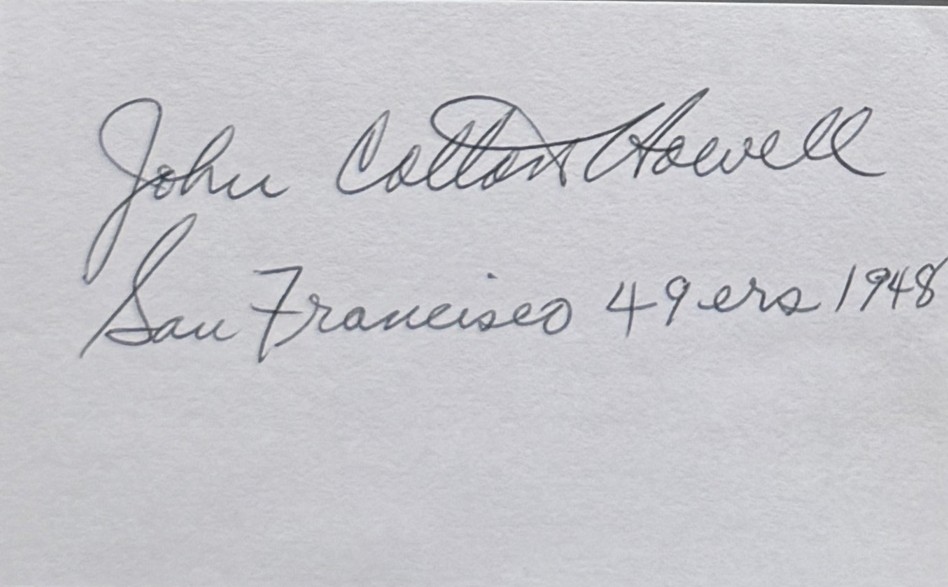 John Cotton Howell
San Francisco 49ers 1948